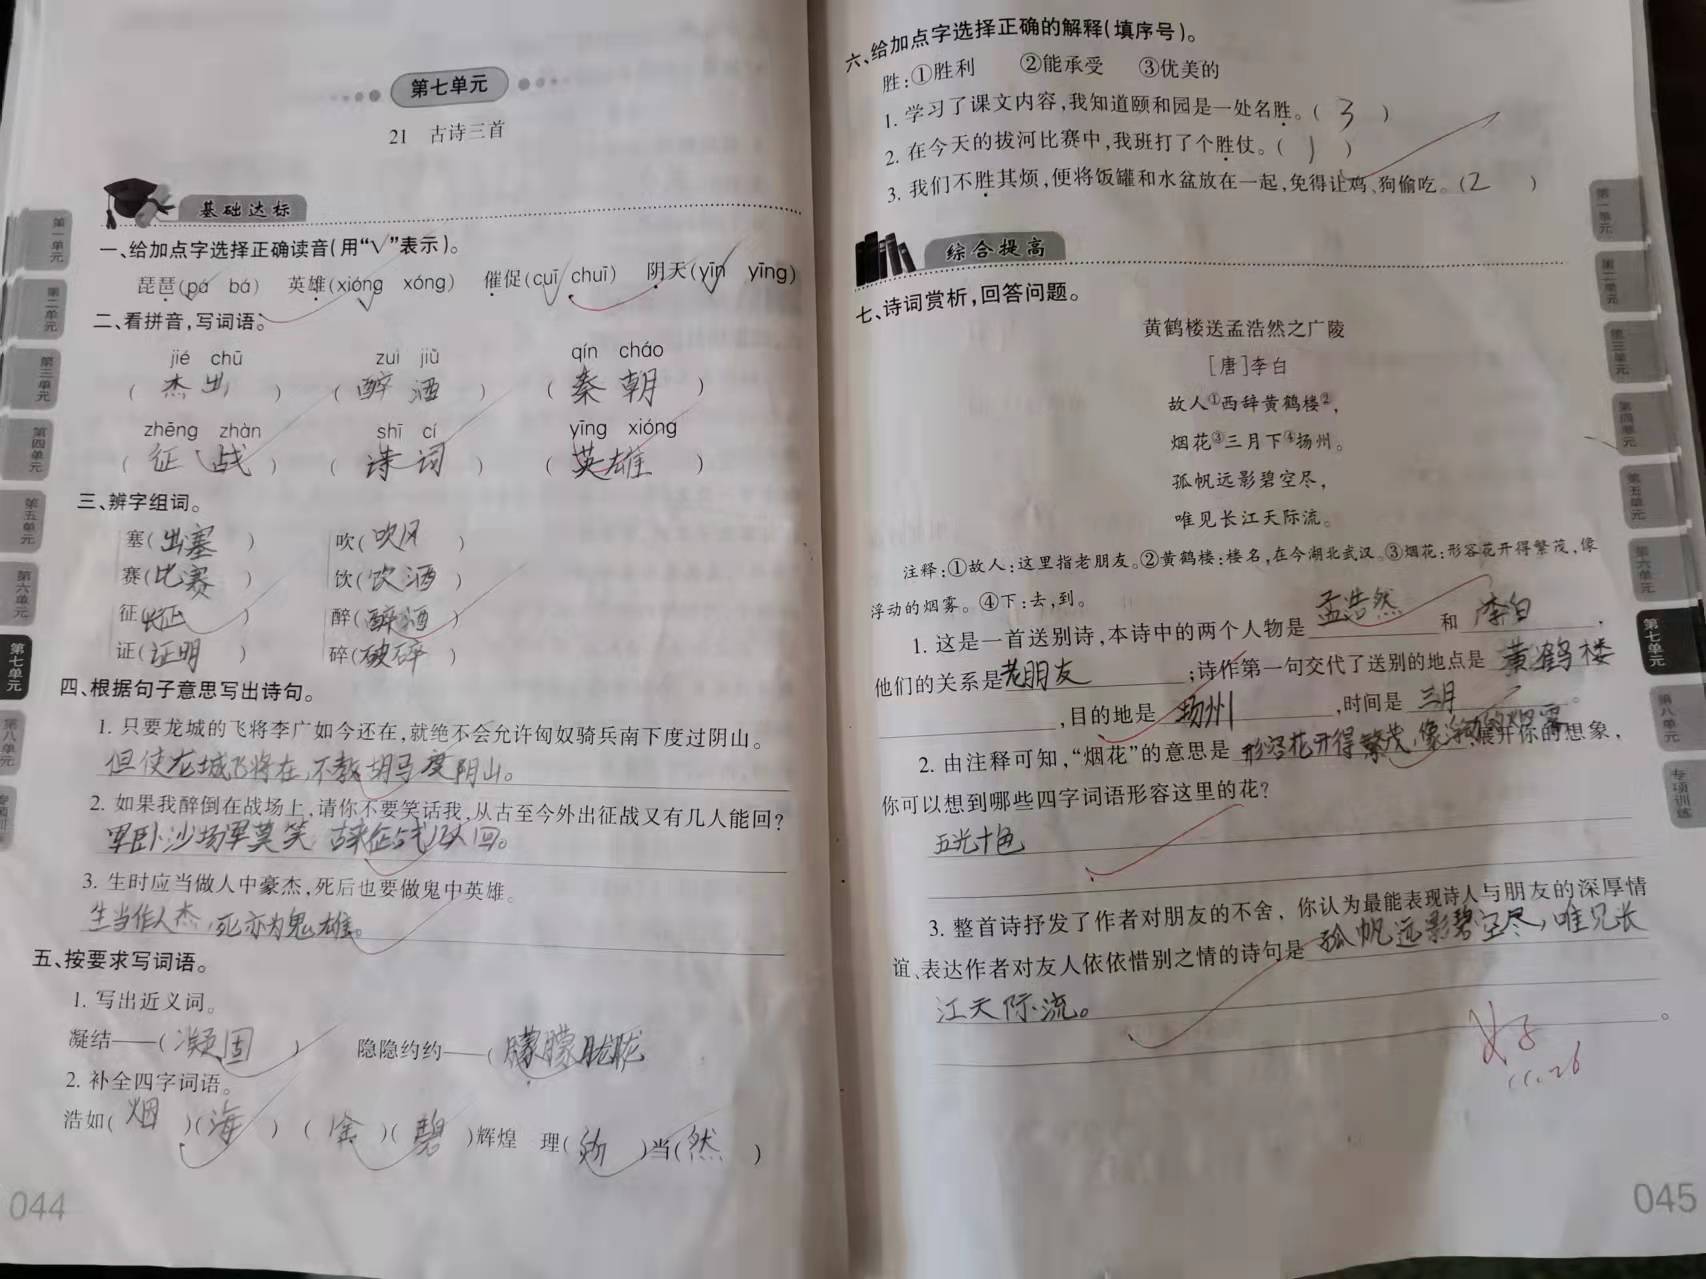 第七单元
21 古诗三首
基础达标
一、给加点字选择正确读音(用“√”表示)。
琵琶(pá bá) 英雄(xióng xóng) 催促(cuī chuī) 阴天(yīn yīng)
二、看拼音,写词语。
jié chū zuì jiǔ qín cháo
(杰出) (醉酒) (秦朝)
zhēng zhàn shī cí yīng xióng
(征战) (诗词) (英雄)
三、辨字组词。
塞(出塞) 吹(吹风)
赛(比赛) 饮(饮酒)
征(长征) 醉(醉酒)
证(证明) 碎(破碎)
四、根据句子意思写出诗句。
1. 只要龙城的飞将李广如今还在,就绝不会允许匈奴骑兵南下度过阴山。
但使龙城飞将在,不教胡马度阴山。
2. 如果我醉倒在战场上,请你不要笑话我,从古至今外出征战又有几人能回?
卧沙场君莫笑 古来征战几人回。
3. 生时应当做人中豪杰,死后也要做鬼中英雄。
生当作人杰,死亦为鬼雄。
五、按要求写词语。
1. 写出近义词。
凝结——(凝固) 隐隐约约——(朦朦胧胧
2. 补全四字词语。
浩如(烟)(海) (金)(碧)辉煌 理(所)当(然)
044
六、给加点字选择正确的解释(填序号)。
胜:①胜利 ②能承受 ③优美的
1. 学习了课文内容,我知道颐和园是一处名胜。(3)
2. 在今天的拔河比赛中,我班打了个胜仗。(1)
3. 我们不胜其烦,便将饭罐和水盆放在一起,免得让鸡、狗偷吃。(2)
综合提高
七、诗词赏析,回答问题。
黄鹤楼送孟浩然之广陵
[唐]李白
故人①西辞黄鹤楼②,
烟花③三月下④扬州。
孤帆远影碧空尽,
唯见长江天际流。
注释:①故人:这里指老朋友。②黄鹤楼:楼名,在今湖北武汉。③烟花:形容花开得繁茂,像
浮动的烟雾。④下:去,到。
1. 这是一首送别诗,本诗中的两个人物是 孟浩然 和 李白 ,
他们的关系是老朋友 ;诗作第一句交代了送别的地点是 黄鹤楼
,目的地是 扬州 ,时间是 三月 。
2. 由注释可知,“烟花”的意思是 形容花开得繁茂,像浮动的烟雾 展开你的想象,
你可以想到哪些四字词语形容这里的花?
五光十色
3. 整首诗抒发了作者对朋友的不舍,你认为最能表现诗人与朋友的深厚情
谊、表达作者对友人依依惜别之情的诗句是 孤帆远影碧空尽,唯见长
江天际流。
。
好
11.26
045
第一单元
第二单元
第三单元
第四单元
第五单元
第六单元
第七单元
第八单元
第一单元
第二单元
第三单元
第四单元
第五单元
第六单元
第七单元
第八单元
专项训练